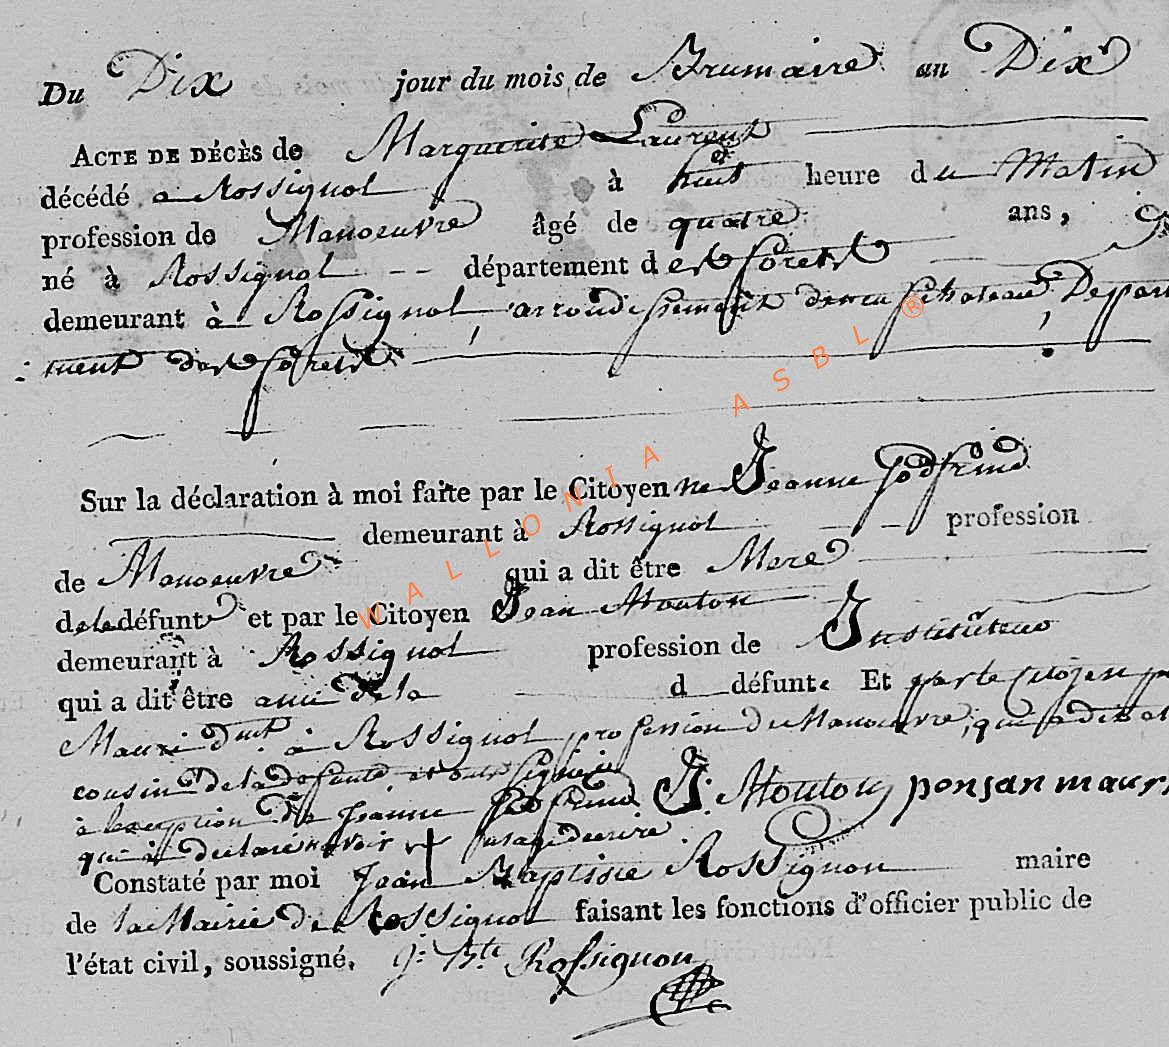 Du Dix jour du mois de Brumaire an Dix
ACTE DE DÉCÈS de Marguerite Laurent
décédé a Rossignol à huit heure du Matin
profession de Manoeuvre âgé de quatre ans,
né à Rossignol -- département des forets
demeurant à Rossignol, arrondissement de neufchateau, Departe
:ment des forets
Sur la déclaration à moi faite par le Citoyenne Jeanne Godfrind
demeurant à Rossignol profession
de Manoeuvre qui a dit être Mere
de la défunte et par le Citoyen Jean Mouton
demeurant à Rossignol profession de Instituteur
qui a dit être ami de la d défunte Et par le Citoyen
Mauri dmt à Rossignol profession de Manoeuvre, qui a dit
cousin de la defunte et ont signé
à l'exception de Jeanne Godfrind J. Mouton ponsan maur
qui a declaré n'avoir usage decrire
Constaté par moi Jean Baptiste Rossignon maire
de la Mairie de Rossignol faisant les fonctions d'officier public de
l'état civil, soussigné. J: Bte Rossignon
WALLONIA ASBL ®